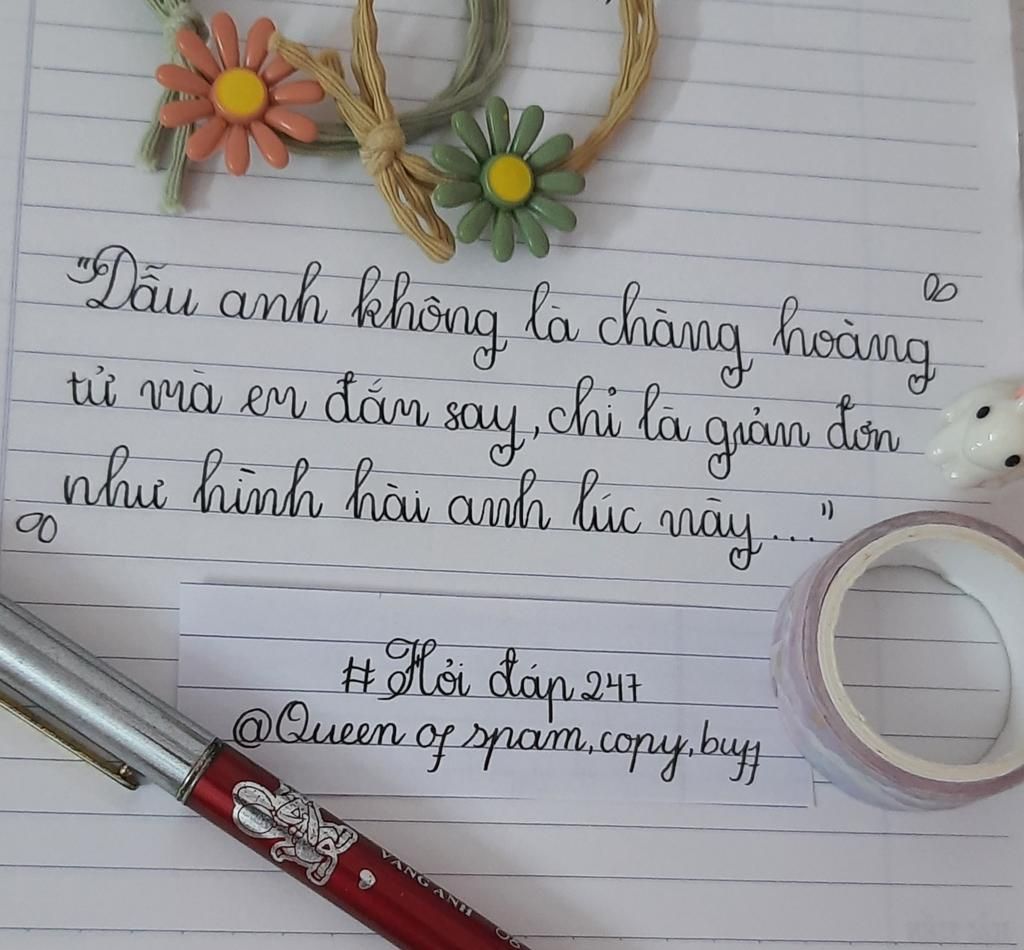 "Dẫu anh không là chàng hoàng
tử mà em đắm say, chỉ là giản đơn
như hình hài anh lúc này..."
#Hỏi đáp 247
@Queen of spam, copy, buff
VANG ANH